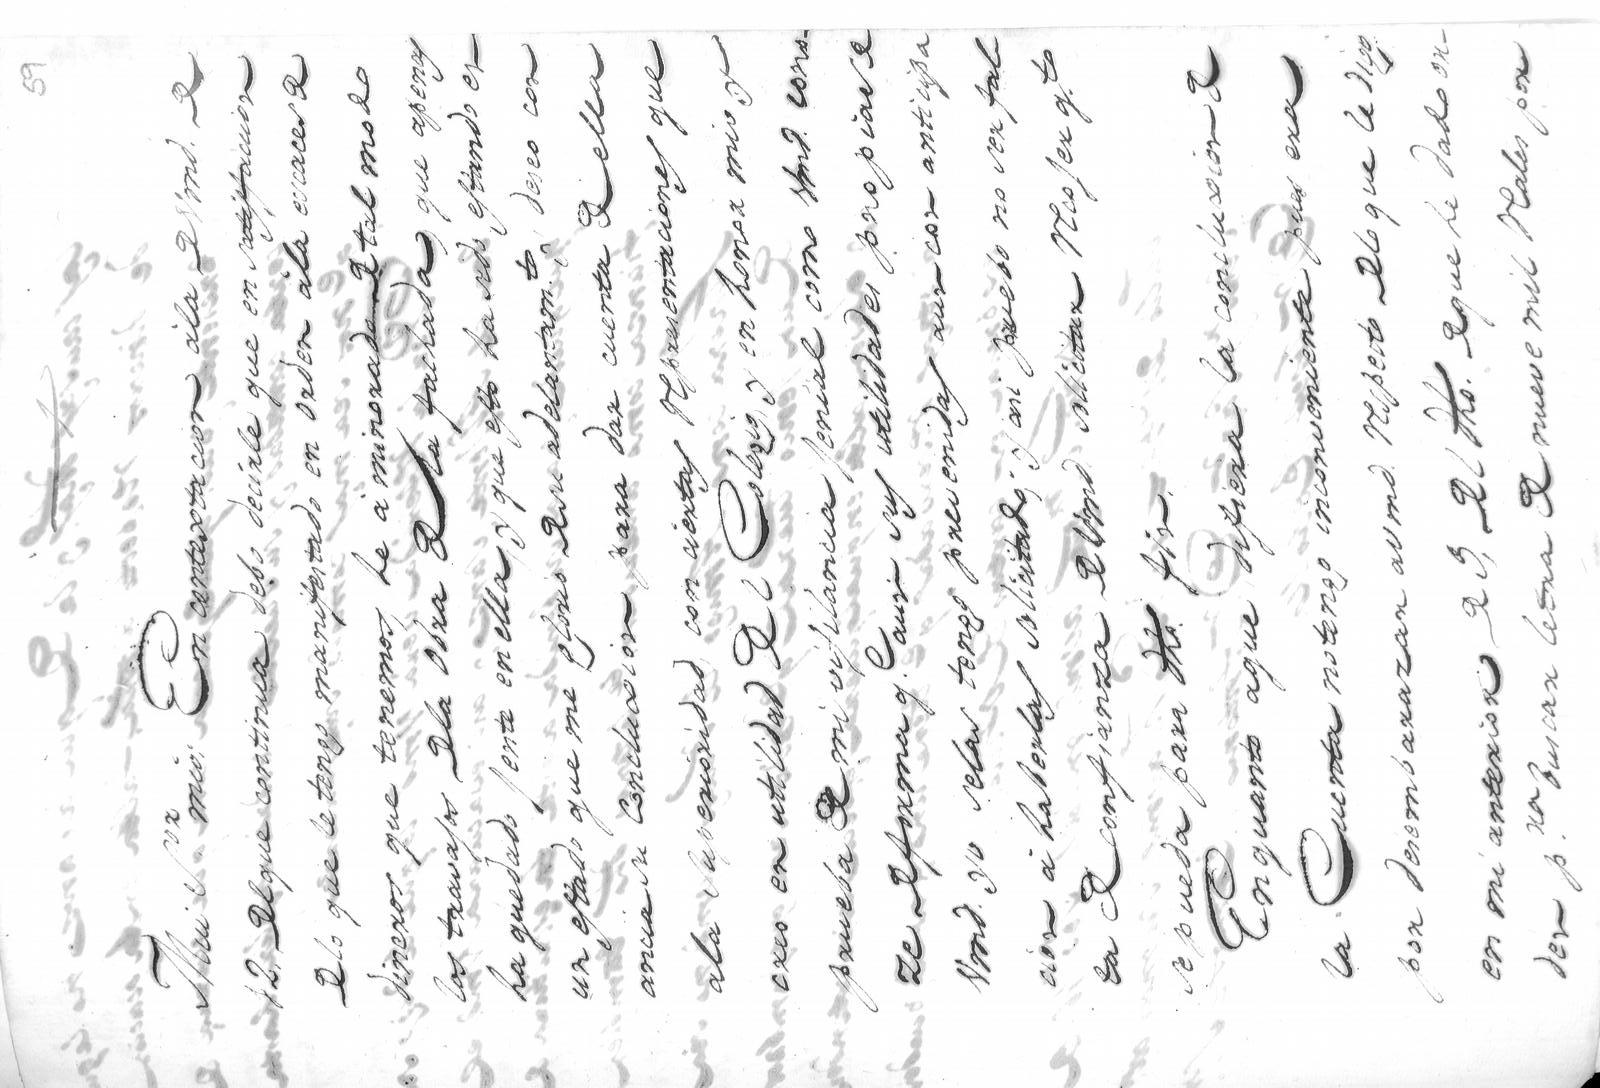 59
Mui S.or mio: En contextacion àla de Vmd. de
12, del que continua debo decirle que en satisfacion
de lo que le tengo manifestado en orden àla escaces de
dineros que tenemos he aminorado de tal modo
los travajos dela obra de la fachada, que apenas
ha quedado jente en ella, y que esto ha sido estando en
un estado que me glorio de su adelantam.to, deseo con
ancia su conclucion para dar cuenta de ella
ala superioridad con ciertas representaciones que
creo en utilidad del Colegio, y en honor mio, y
prueba de mi vigilancia, seria como Vmd. cono-
ze de forma q. aun sus utilidades propias de
Vmd. yo selas tengo prevenidas aun con antiipa
cion à haberlas solicitado; y asi puesto no ser fal
ta de confianza de Vmd solicitar Nos ser q.to
se pueda para dho. fin.
En quanto aque difiera la conclusion de
la Cuenta no tengo inconveniente pues era
por desembarazar a Vmd. respecto delo que le digo
en mi anterior de 9, del dho. de que he dado or-
den p.a buscar letra de nueve mil reales por